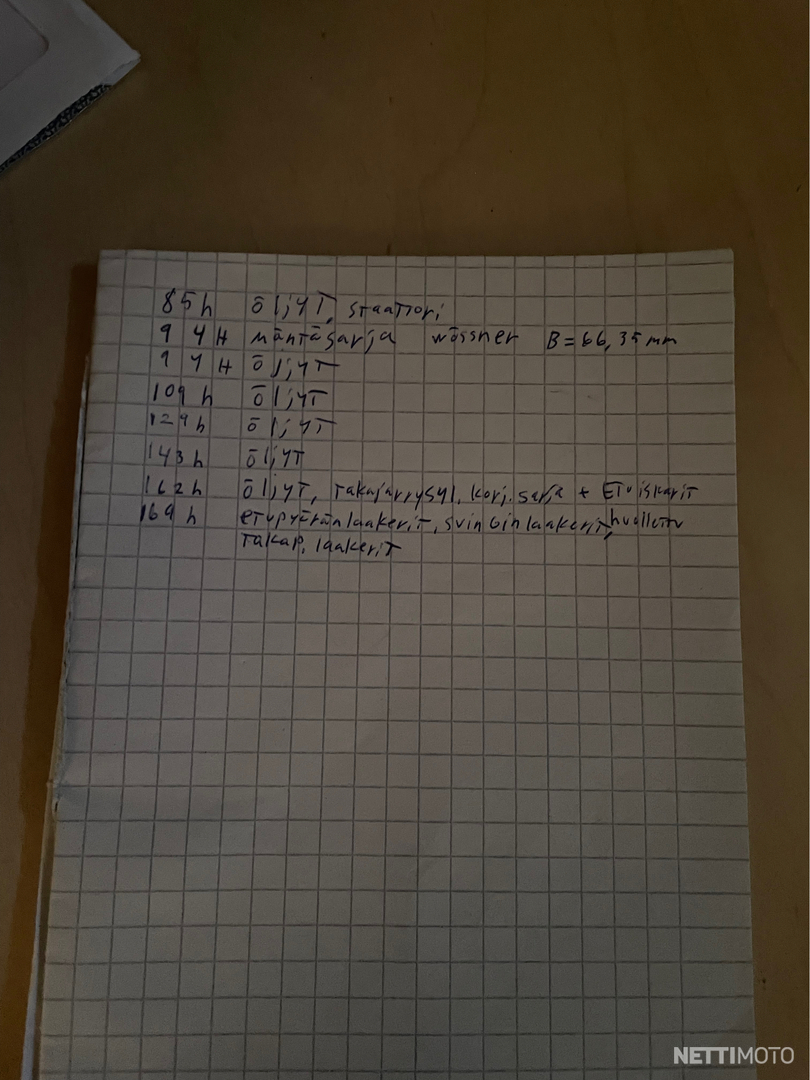 85h öljyt, staattori
94H mäntäsarja wössner B=66,35mm
94H öljyt
109h öljyt
129h öljyt
143h öljyt
162h öljyt, takajarrusyl. korj. sarja + Etuiskarit
169h etupyörän laakerit, svinbin laakerit, huollettu
takap. laakerit
NETTIMOTO